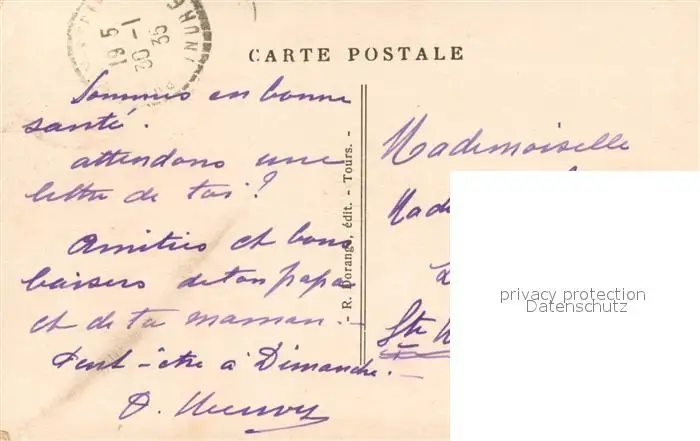 195
30-1
35
CARTE POSTALE
Sommes en bonne
santé.
attendons une
lettre de toi ?
Amitiés et bons
baisers de ton papa
et de ta maman. -
Peut-être à Dimanche. -
R. Dorange, édit. - Tours. -
Mademoiselle
Made
Ste
privacy protection
Datenschutz